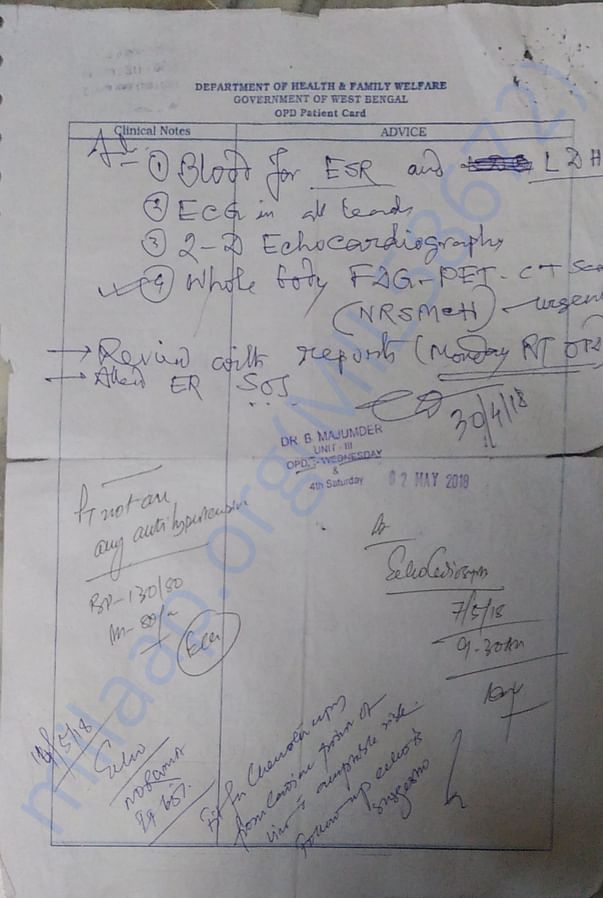 DEPARTMENT OF HEALTH & FAMILY WELFARE
GOVERNMENT OF WEST BENGAL
OPD Patient Card
Clinical Notes
ADVICE
① Blood for ESR and LDH
② ECG in all leads
③ 2-D Echocardiography
④ Whole body FDG-PET-CT Scan
(NRSMCH) - urgent
→ Review with reports (Monday RT OPD)
→ Attend ER SOS
30/4/18
DR B MAJUMDER
UNIT - III
OPD - WEDNESDAY
&
4th Saturday
02 MAY 2018
PT not on
any antihypertensive
BP- 130/80
Echocardiography
7/5/18
9-30AM
/5/18
Echo
normal
EF 65%
Fit for Chemotherapy
from cardiac point of
view acceptable risk.
Follow up echo is
suggested
milaap.org